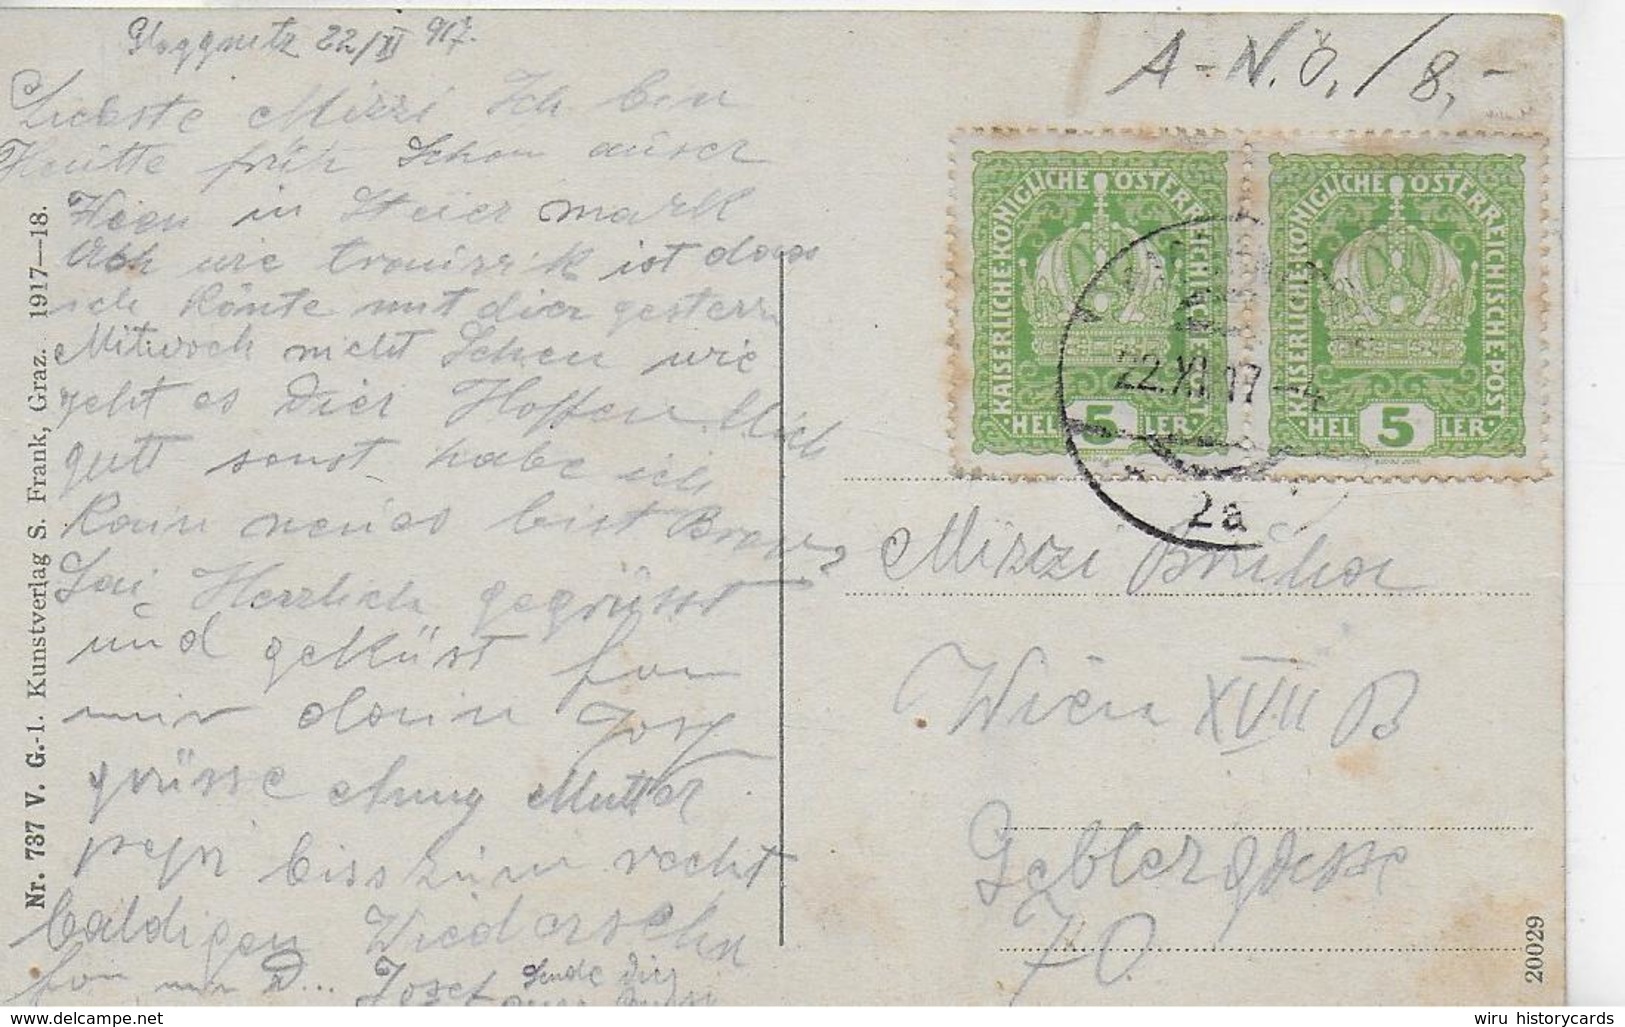 Gloggnitz 22/XI 917.
A - N.Ö. / 8,-
Liebste Mizzi Ich bin
Heutte früh Schon auser
Wien in Steier mark
Ach wie traurik ist dass
ich Könte mit dier gestern
Mitwoch nicht Sehen wie
geht es Dier Hoffen lich
gutt sonst habe ich
Kein neues bist Brav
Sei Herzlich gegrüsst
und geküst fon
mir dein Josef
grüsse Mutter
pepi biss zum recht
baldigen Wiedersehn
fon mir D... Josef
Sende Dier
KAISERLICHE·KÖNIGLICHE ÖSTERREICHISCHE·POST
HEL 5 LER
KAISERLICHE·KÖNIGLICHE ÖSTERREICHISCHE·POST
HEL 5 LER
22.XI.17-4
2a
Mizzi
Wien XVII B
Geblergasse
70.
Nr. 737 V. G.-1. Kunstverlag S. Frank, Graz. 1917—18.
20029
www.delcampe.net
wiru historycards